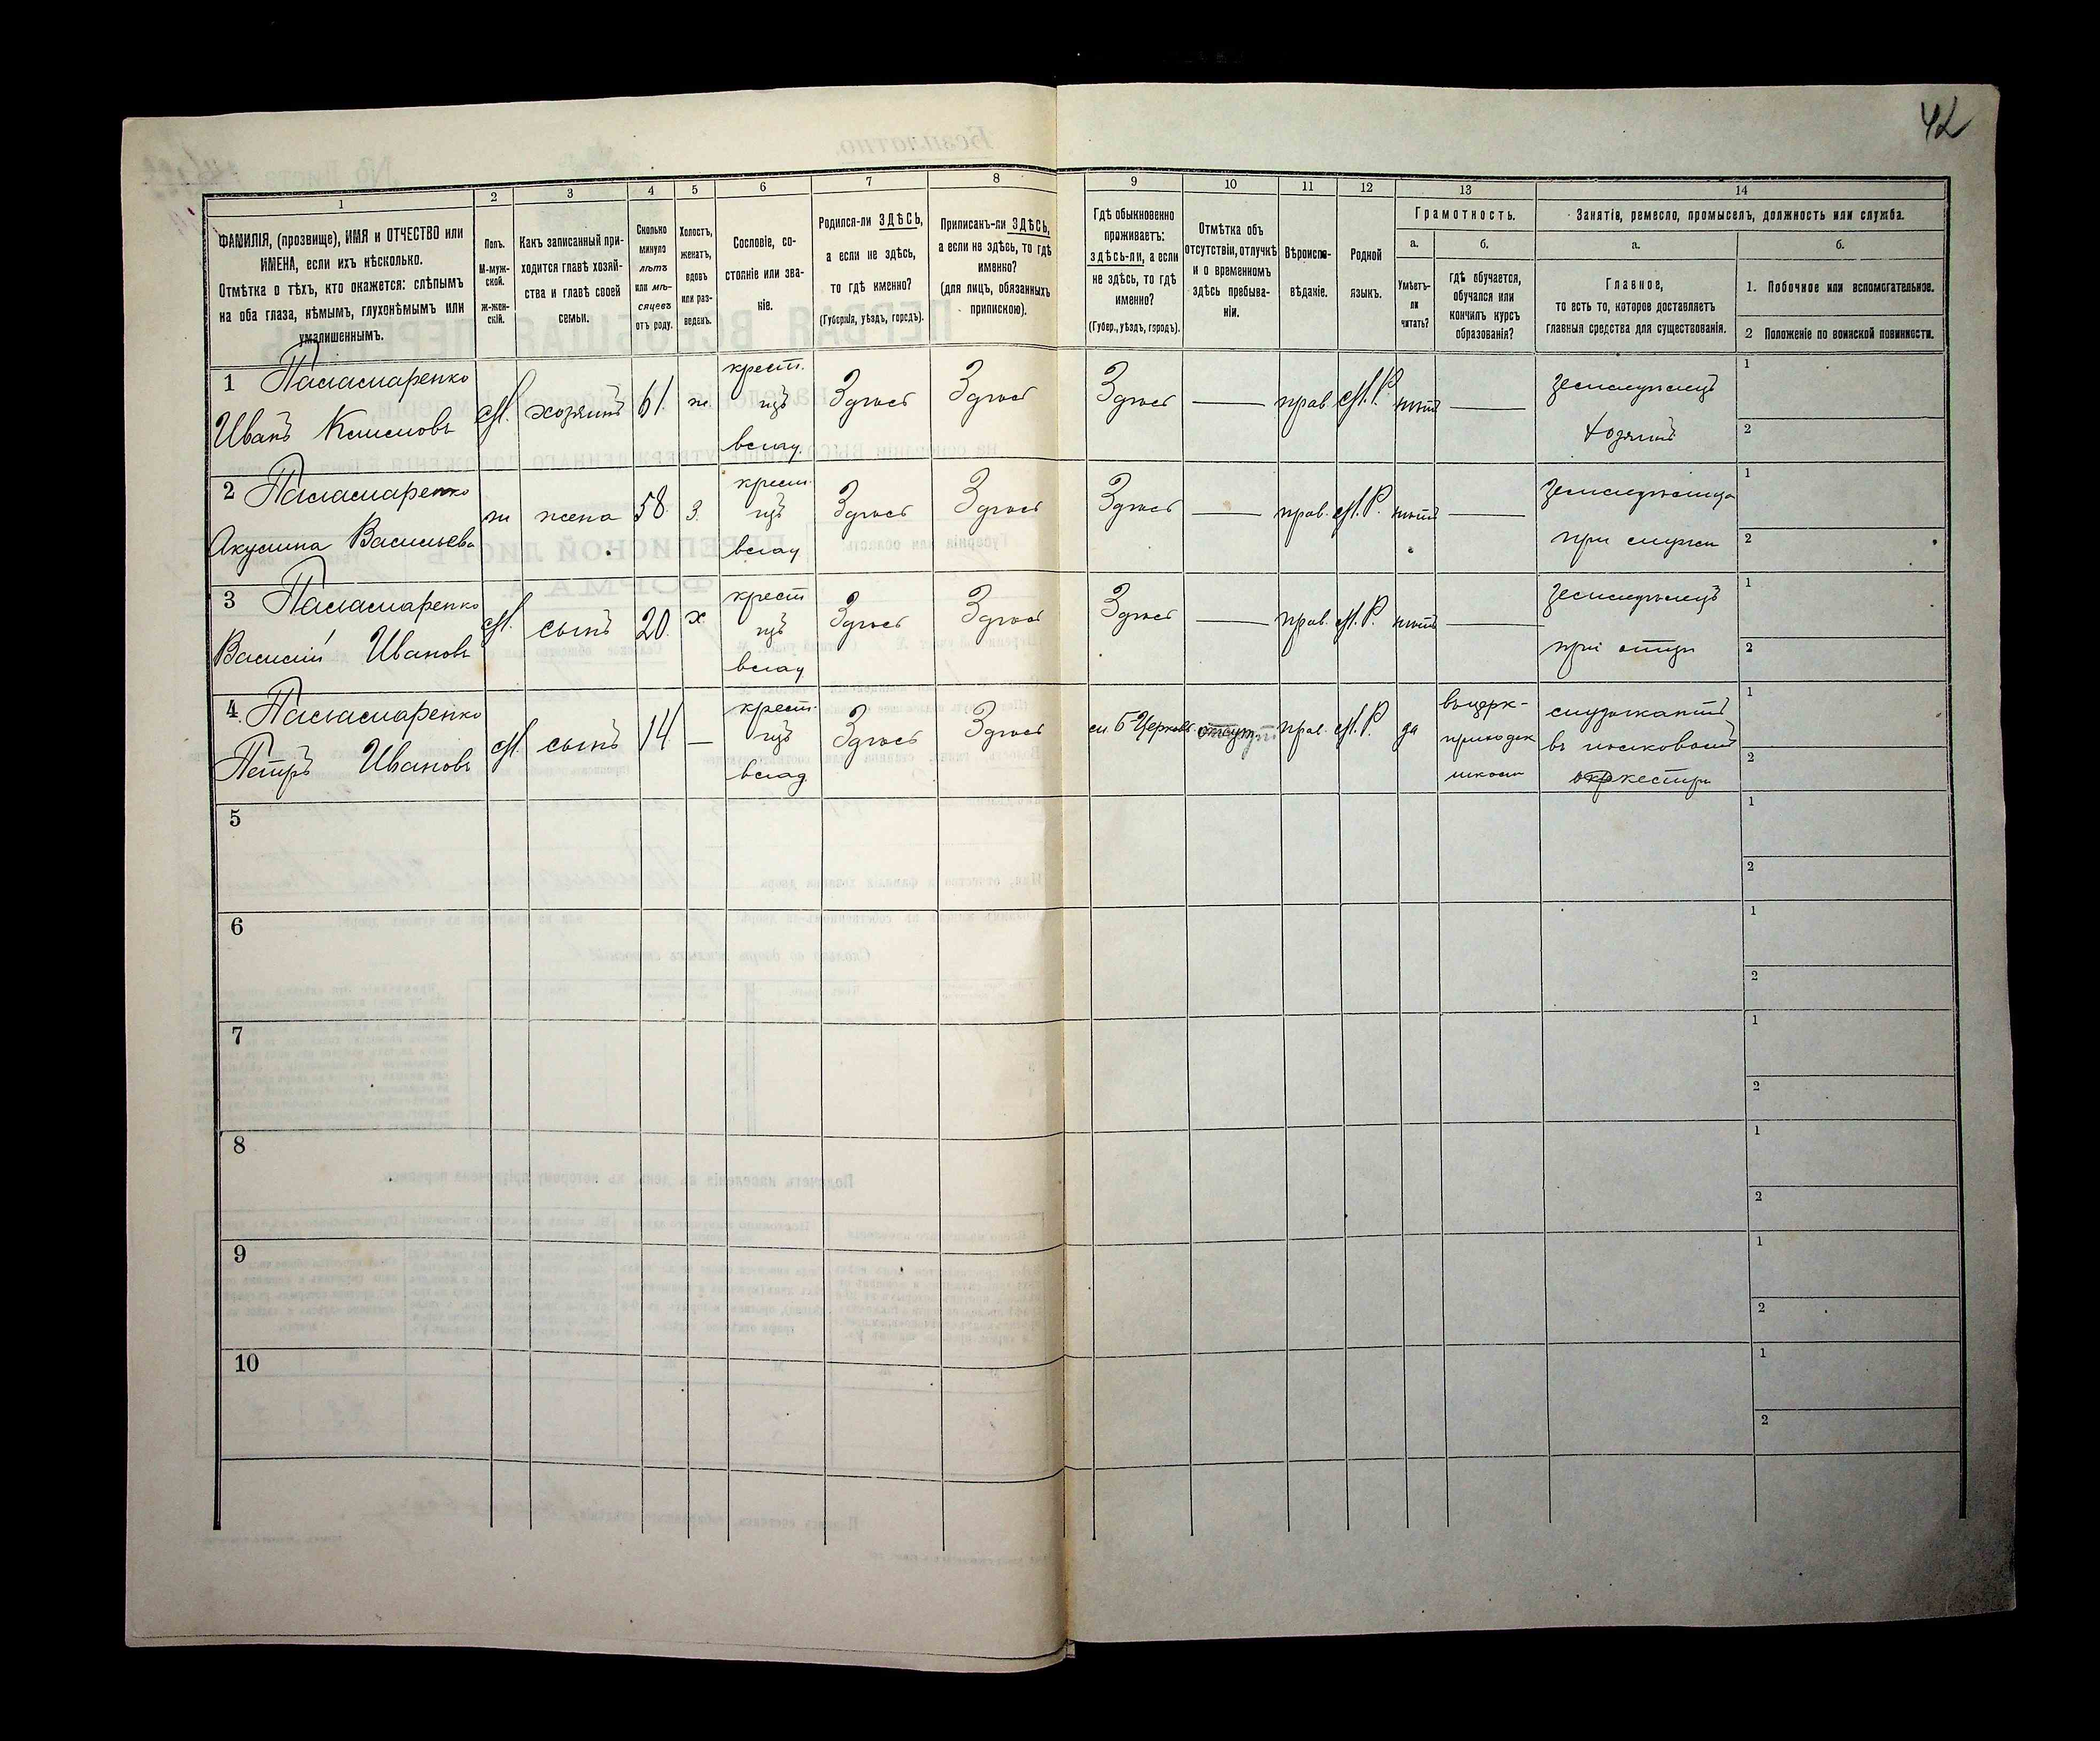 42
1 2 3 4 5 6 7 8 9 10 11 12 13 14
ФАМИЛІЯ, (прозвище), ИМЯ и ОТЧЕСТВО или
ИМЕНА, если ихъ нѣсколько.
Отмѣтка о тѣхъ, кто окажется: слѣпымъ
на оба глаза, нѣмымъ, глухонѣмымъ или
умалишеннымъ.
Полъ.
М-муж-
ской.
ж-жен-
скій.
Какъ записанный при-
ходится главѣ хозяй-
ства и главѣ своей
семьи.
Сколько
минуло
лѣтъ
или мѣ-
сяцевъ
отъ роду.
Холостъ,
женатъ,
вдовъ
или раз-
веденъ.
Сословіе, со-
стояніе или зва-
ніе.
Родился-ли ЗДѢСЬ,
а если не здѣсь,
то гдѣ именно?
(Губернія, уѣздъ, городъ).
Приписанъ-ли ЗДѢСЬ,
а если не здѣсь, то гдѣ
именно?
(для лицъ, обязанныхъ
припискою).
Гдѣ обыкновенно
проживаетъ:
здѣсь-ли, а если
не здѣсь, то гдѣ
именно?
(Губер., уѣздъ, городъ).
Отмѣтка объ
отсутствіи, отлучкѣ
и о временномъ
здѣсь пребыва-
ніи.
Вѣроиспо-
вѣданіе.
Родной
языкъ.
Грамотность.
а.
Умѣетъ-
ли
читать?
б.
гдѣ обучается,
обучался или
кончилъ курсъ
образованія?
Занятіе, ремесло, промыселъ, должность или служба.
а.
Главное,
то есть то, которое доставляетъ
главныя средства для существованія.
б.
1. Побочное или вспомогательное.
2 Положеніе по воинской повинности.
1 Паламаренко
Иванъ Климовъ
М. хозяинъ 61 ж
крест.
изъ
влад.
Здѣсь Здѣсь Здѣсь — прав. М.Р. нѣтъ —
земледѣлецъ
хозяинъ
1
2
2 Паламаренко
Акулина Васильева
ж жена 58. З.
крест.
изъ
влад
Здѣсь Здѣсь Здѣсь — прав. М.Р. нѣтъ —
земледѣлица
при мужи
1
2
3 Паламаренко
Василій Ивановъ
М. сынъ 20. х
крест
изъ
влад
Здѣсь Здѣсь Здѣсь — прав. М.Р. нѣтъ —
земледѣлецъ
при отцѣ
1
2
4. Паламаренко
Петръ Ивановъ
М. сынъ 14 —
крест.
изъ
влад.
Здѣсь Здѣсь м. Б-Церковь отсут. прав. М.Р. да
въ церк-
приходск
школѣ
музыкантъ
въ полковомъ
оркестрѣ
1
2
5
1
2
6
1
2
7
1
2
8
1
2
9
1
2
10
1
2